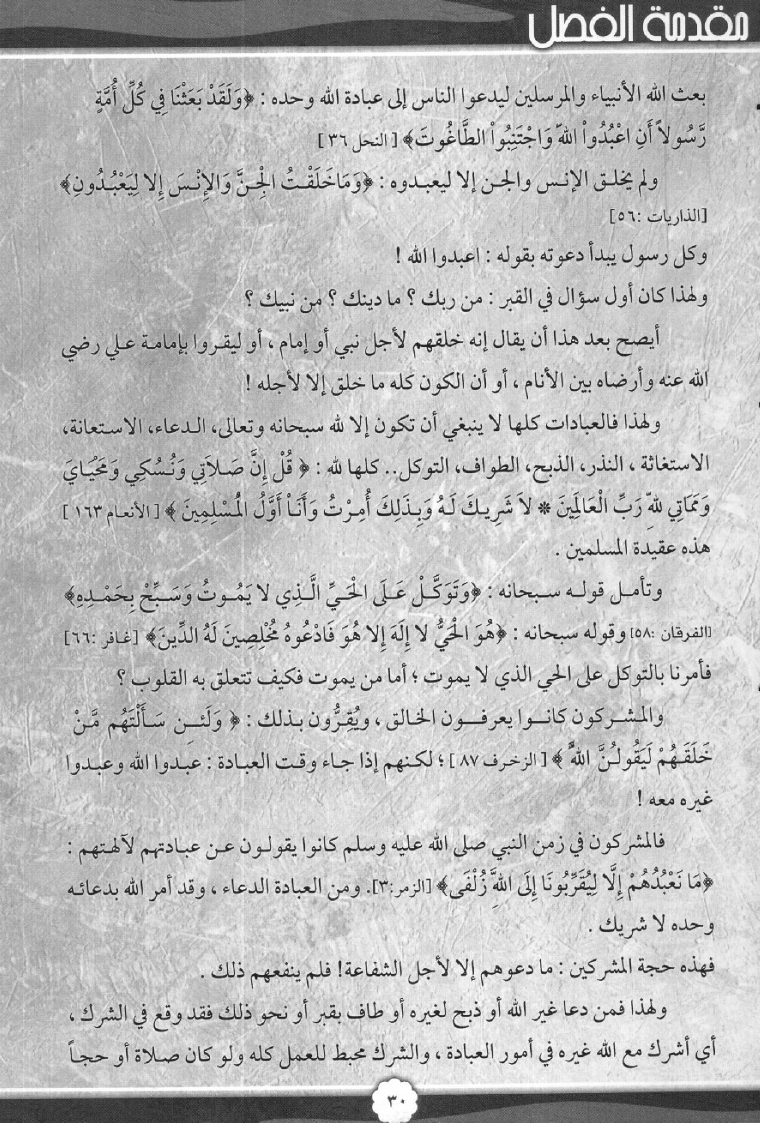 مقدمة الفصل
بعث الله الأنبياء والمرسلين ليدعوا الناس إلى عبادة الله وحده : ﴿وَلَقَدْ بَعَثْنَا فِي كُلِّ أُمَّةٍ
رَّسُولاً أَنِ اعْبُدُواْ اللّهَ وَاجْتَنِبُواْ الطَّاغُوتَ﴾ [ النحل ٣٦ ]
ولم يخلق الإنس والجن إلا ليعبدوه : ﴿وَمَا خَلَقْتُ الْجِنَّ وَالإِنْسَ إِلا لِيَعْبُدُونِ﴾
[الذاريات :٥٦]
وكل رسول يبدأ دعوته بقوله : اعبدوا الله !
ولهذا كان أول سؤال في القبر : من ربك ؟ ما دينك ؟ من نبيك ؟
أيصح بعد هذا أن يقال إنه خلقهم لأجل نبي أو إمام ، أو ليقروا بإمامة علي رضي
الله عنه وأرضاه بين الأنام ، أو أن الكون كله ما خلق إلا لأجله !
ولهذا فالعبادات كلها لا ينبغي أن تكون إلا لله سبحانه وتعالى، الدعاء، الاستعانة،
الاستغاثة ، النذر، الذبح، الطواف، التوكل.. كلها لله : ﴿ قُلْ إِنَّ صَلاَتِي وَنُسُكِي وَمَحْيَايَ
وَمَمَاتِي لِلّهِ رَبِّ الْعَالَمِينَ * لاَ شَرِيكَ لَهُ وَبِذَلِكَ أُمِرْتُ وَأَنَاْ أَوَّلُ الْمُسْلِمِينَ ﴾ [ الأنعام ١٦٣ ]
هذه عقيدة المسلمين .
وتأمل قوله سبحانه : ﴿وَتَوَكَّلْ عَلَى الْحَيِّ الَّذِي لا يَمُوتُ وَسَبِّحْ بِحَمْدِهِ﴾
[الفرقان :٥٨] وقوله سبحانه : ﴿هُوَ الْحَيُّ لا إِلَهَ إِلا هُوَ فَادْعُوهُ مُخْلِصِينَ لَهُ الدِّينَ﴾ [غافر :٦٦]
فأمرنا بالتوكل على الحي الذي لا يموت ؛ أما من يموت فكيف تتعلق به القلوب ؟
والمشركون كانوا يعرفون الخالق ، ويُقِرُّون بذلك : ﴿ وَلَئِن سَأَلْتَهُم مَّنْ
خَلَقَهُمْ لَيَقُولُنَّ اللَّهُ ﴾ [ الزخرف ٨٧ ] ؛ لكنهم إذا جاء وقت العبادة : عبدوا الله وعبدوا
غيره معه !
فالمشركون في زمن النبي صلى الله عليه وسلم كانوا يقولون عن عبادتهم لآلهتهم :
﴿مَا نَعْبُدُهُمْ إِلَّا لِيُقَرِّبُونَا إِلَى اللَّهِ زُلْفَى﴾ [الزمر:٣]. ومن العبادة الدعاء ، وقد أمر الله بدعائه
وحده لا شريك .
فهذه حجة المشركين : ما دعوهم إلا لأجل الشفاعة! فلم ينفعهم ذلك .
ولهذا فمن دعا غير الله أو ذبح لغيره أو طاف بقبر أو نحو ذلك فقد وقع في الشرك ،
أي أشرك مع الله غيره في أمور العبادة ، والشرك محبط للعمل كله ولو كان صلاة أو حجاً
٣٠